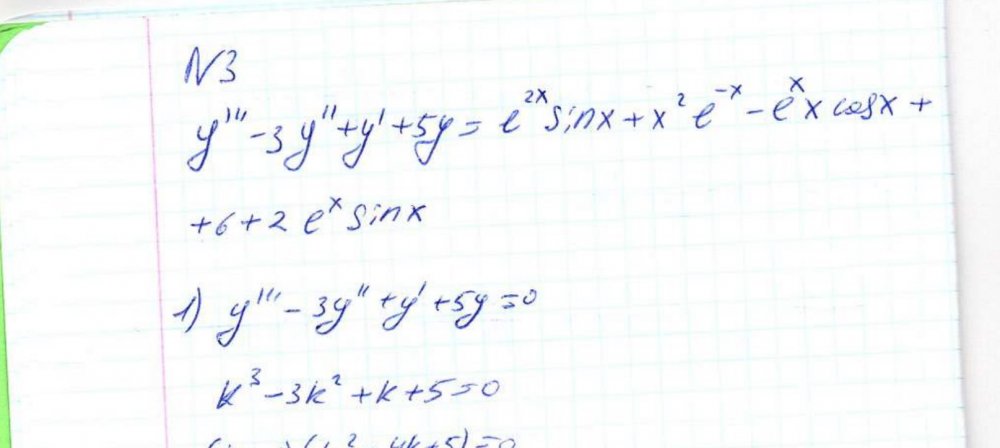 N3
y''' - 3y'' + y' + 5y = e^{2x} sinx + x^2 e^{-x} - e^x x cosx +
+ 6 + 2 e^x sinx
1) y''' - 3y'' + y' + 5y = 0
k^3 - 3k^2 + k + 5 = 0